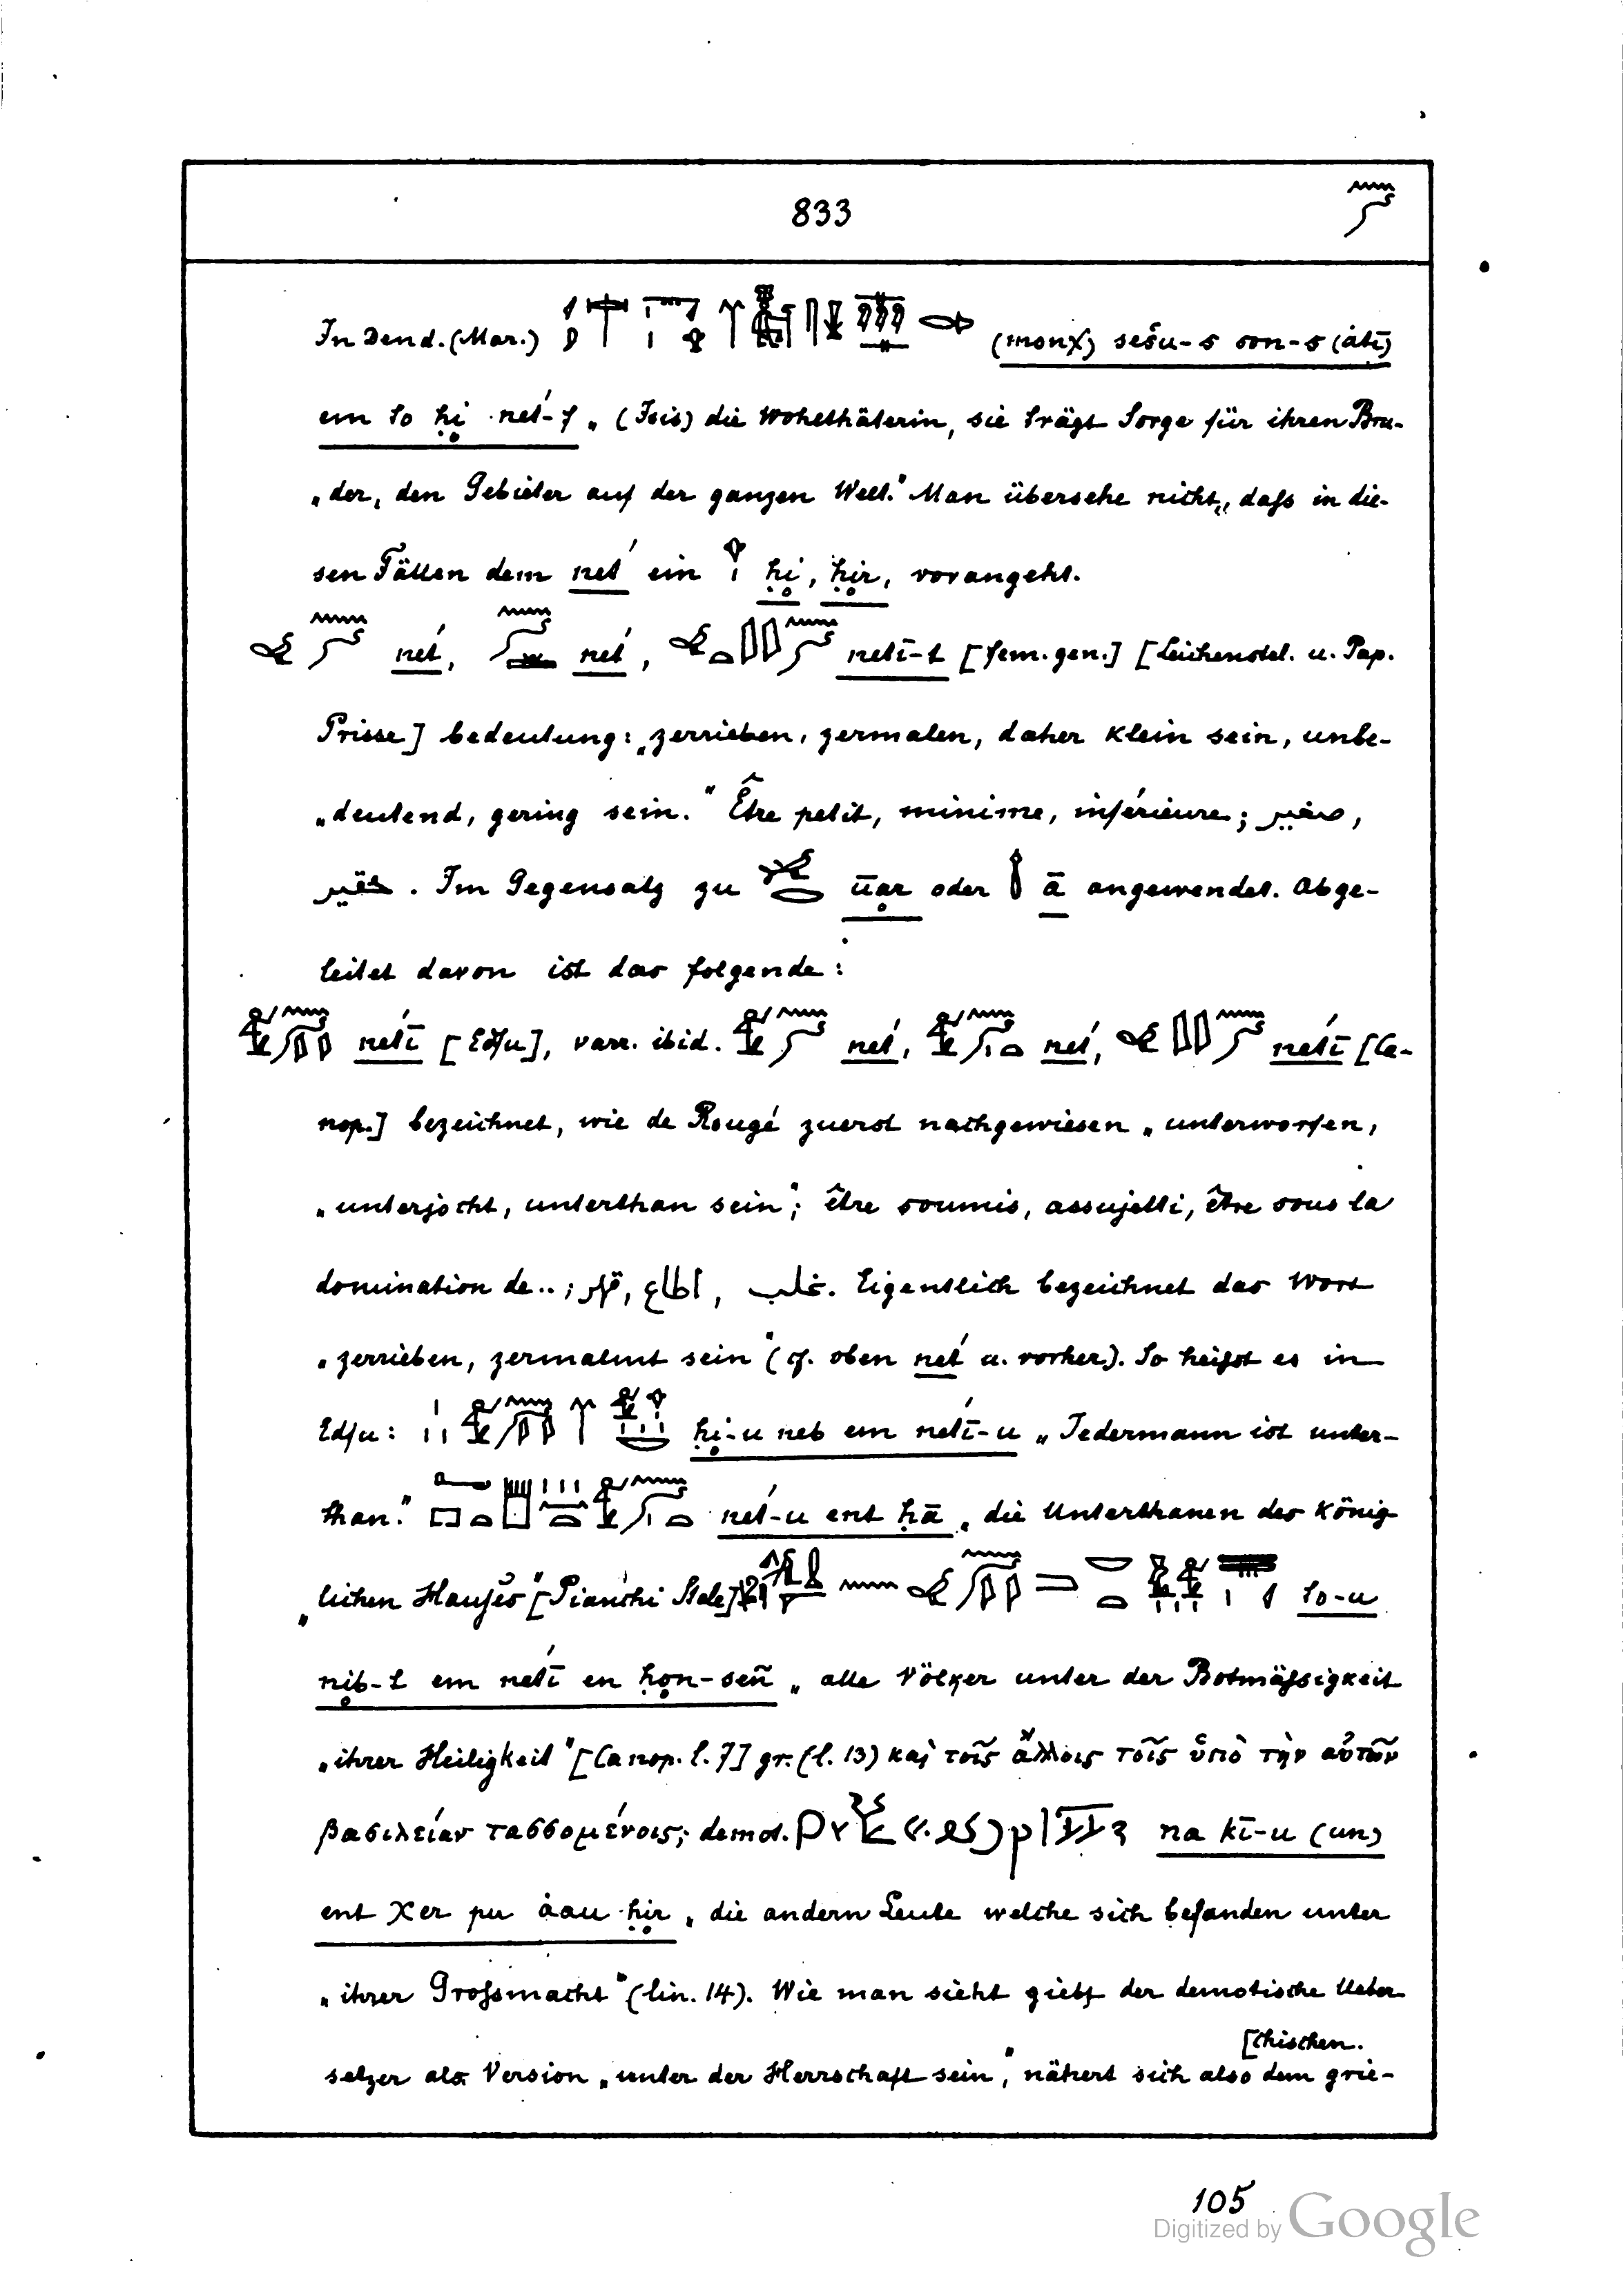 833
In Dend. (Mar.) (monχ) sešu-s son-s (àtī)
em to ḥi neť-f „(Isis) die Wohlthäterin, sie trägt Sorge für ihren Bru-
„der, den Gebieter auf der ganzen Welt.“ Man übersehe nicht, daſs in die-
sen Fällen dem neť ein ḥi, ḥir, vorangeht.
neť, neť, netī-t [fem. gen.] [Leichenstel. u. Pap.
Prisse] bedeutung: „zerrieben, zermalen, daher klein sein, unbe-
„deutend, gering sein.“ Être petit, minime, inférieure; صغير,
حقير. Im Gegensatz zu ūar oder ā angewendet. Abge-
leitet davon ist das folgende:
neťī [Edfu], varr. ibid. neť, neť, neťī [Ca-
nop.] bezeichnet, wie de Rougé zuerst nachgewiesen „unterworfen,
„unterjocht, unterthan sein“; être soumis, assujetti, être sous la
domination de..; قهر, اطاع, غلب. Eigentlich bezeichnet das Wort
„zerrieben, zermalmt sein“ (cf. oben neť u. vorher). So heiſst es in
Edfu: ḥi-u neb em neťī-u „Jedermann ist unter-
than.“ neť-u ent ḥā „die Unterthanen des König
„lichen Hauſes“ [Pianchi Stele] to-u
nib-t em neťī en ḥon-señ „alle Völker unter der Botmäſsigkeit
„ihrer Heiligkeit“ [Canop. l. 7] gr. (l. 13) καὶ τοῖς ἄλλοις τοῖς ὑπὸ τὴν αὐτῶν
βασιλείαν τασσομένοις; demot. na kī-u (un)
ent χer pu àau ḥir „die andern Leute welche sich befanden unter
„ihrer Groſsmacht“ (lin. 14). Wie man sieht giebt der demotische Ueber-
setzer als Version „unter der Herrschaft sein“, nähert sich also dem grie-
[chischen.
105
Digitized by Google